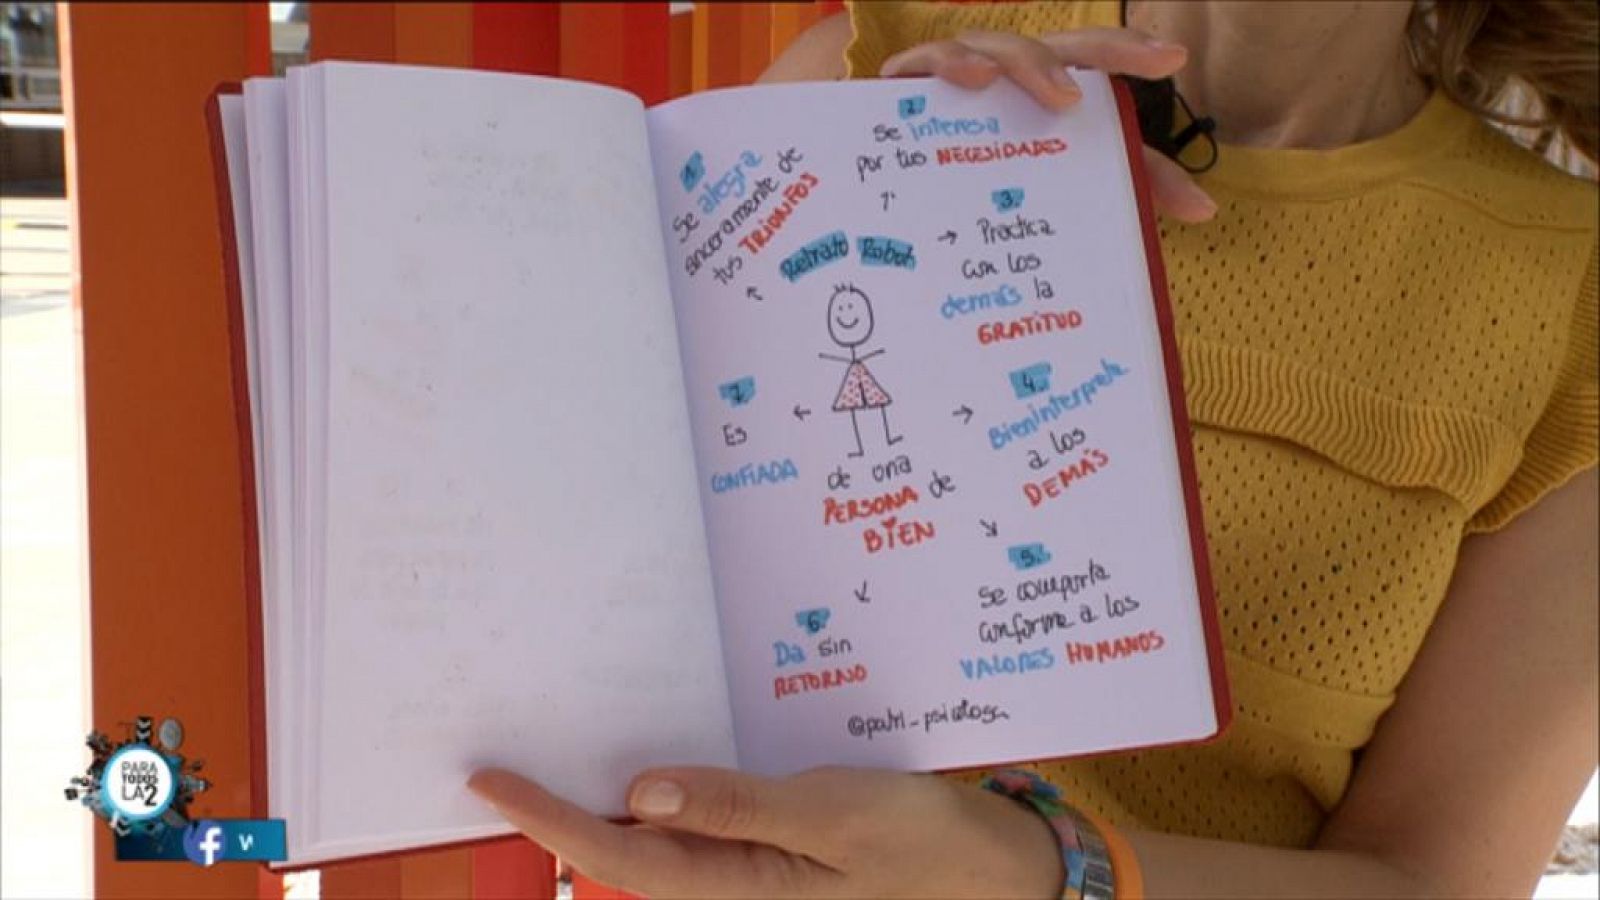 1.
Se alegra
sinceramente de
tus TRIUNFOS
2.
Se interesa
por tus NECESIDADES
3.
Practica
con los
demás la
GRATITUD
Retrato Robot
de una
PERSONA de
BIEN
4.
Bieninterpreta
a los
DEMÁS
5.
Se comporta
conforme a los
VALORES HUMANOS
6.
Da sin
RETORNO
7.
Es
CONFIADA
@patri_psicologa
PARA
TODOS
LA2
f